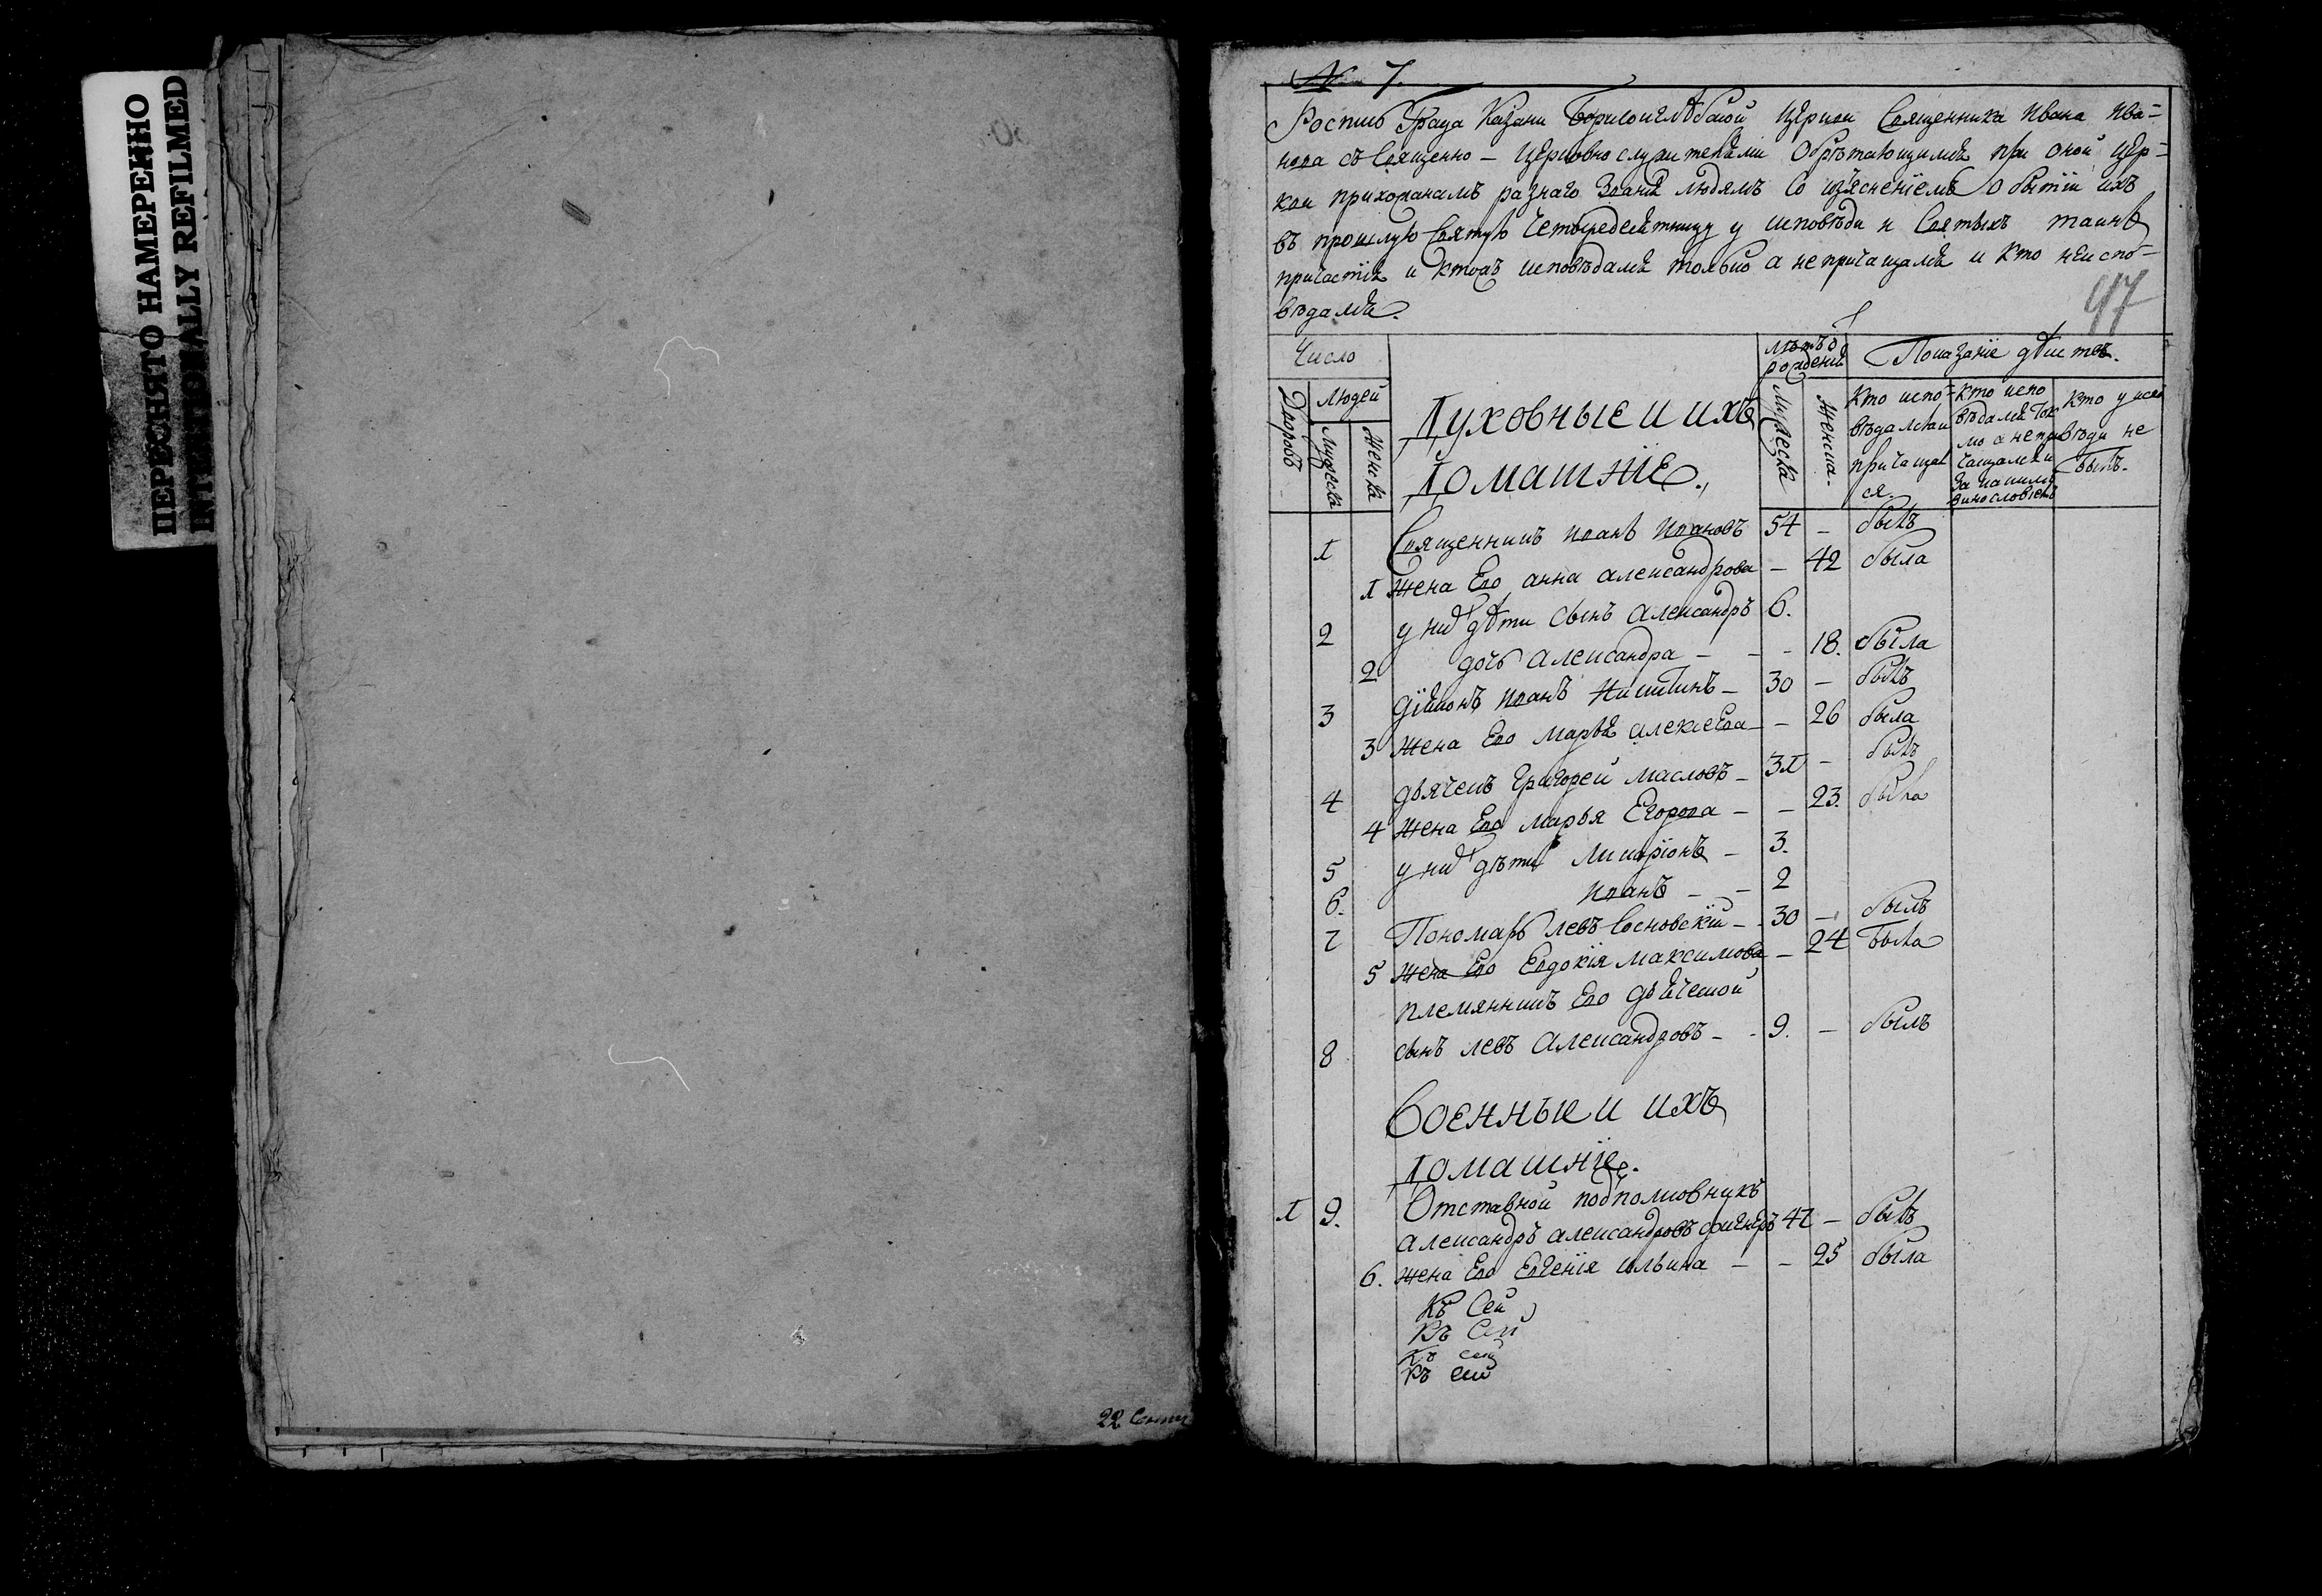 ПЕРЕСНЯТО НАМЕРЕННО
INTENTIONALLY REFILMED
22
№ 7.
Роспись Града Казани Борисоглѣбской Церкви Священника Ивана Ива-
нова съ Священно-Церковнослужительми Обрѣтающимися при оной Цер-
кви прихожанамъ разнаго Званія людямъ Со изъясненіемъ О бытіи ихъ
въ прошлую Святую Четыредесятницу у исповѣди и Святыхъ таинъ
причастія и ктожъ исповѣдался только а непричащался и кто неиспо-
вѣдался.
97
Число
Дворовъ
Людей
Мужеска
Женска
Духовные и ихъ
Домашніе.
Лѣтъ о
рожденіи
Мужеска
Женска.
Показаніе дѣйства.
Кто испо-
вѣдался и
причащал
ся.
Кто испо
вѣдался Ток
мо а непри
чащался и
за какимъ
винословіемъ
Кто у испо
вѣди не
былъ.
1 Священникъ Иванъ Ивановъ 54 - былъ
1 Жена Его анна александрова - 42 была
2 у них дѣти сынъ александръ 6.
2 дочь александра - - - 18. была
3 діяконъ Иванъ Никитинъ - 30 - былъ
3 Жена Его Марья алексіева - - 26 была
4 дьячекъ Григорей Масловъ - 31 - былъ
4 Жена Его Марья Егорова - - 23. была
5 у них дѣти Иларіонъ - 3.
6. Иванъ - - 2
7 Пономарь Левъ Сосновскій - 30 - былъ
5 Жена Его Евдокія Максимова - 24 была
племянникъ Его дьяческой
8 сынъ левъ Александровъ - - 9. - былъ
Военные и ихъ
Домашніе.
Отставной подполковникъ
1 9. александръ александровъ 47 - былъ
6. Жена Его Евгенія - - 25 была
Къ Сей
Къ Сей
Къ сей
Къ сей